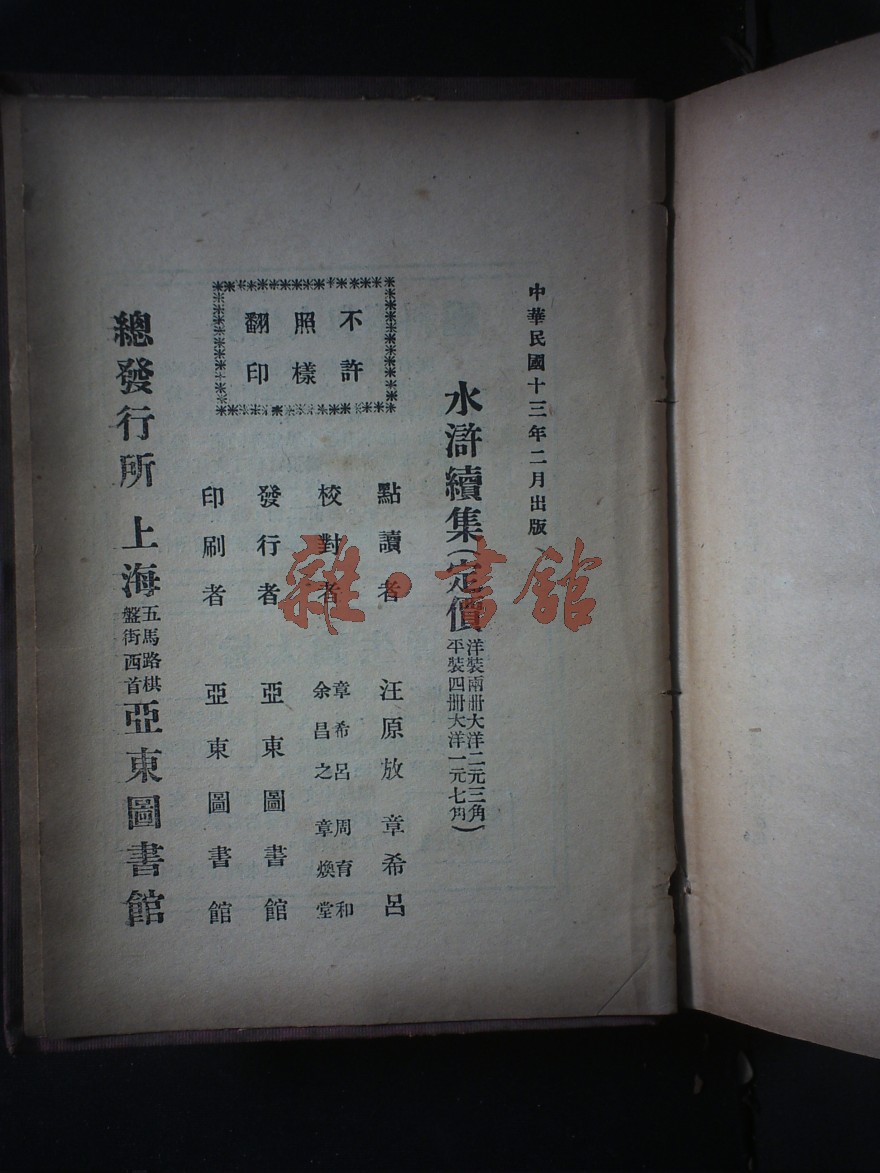 中華民國十三年二月出版
水滸續集(定價洋裝兩冊大洋二元三角
平裝四冊大洋一元七角)
不許
照樣
翻印
點讀者 汪原放 章希呂
校對者 章希呂 周育和
余昌之 章煥堂
發行者 亞東圖書館
印刷者 亞東圖書館
總發行所 上海五馬路棋
盤街西首亞東圖書館
雜·書館